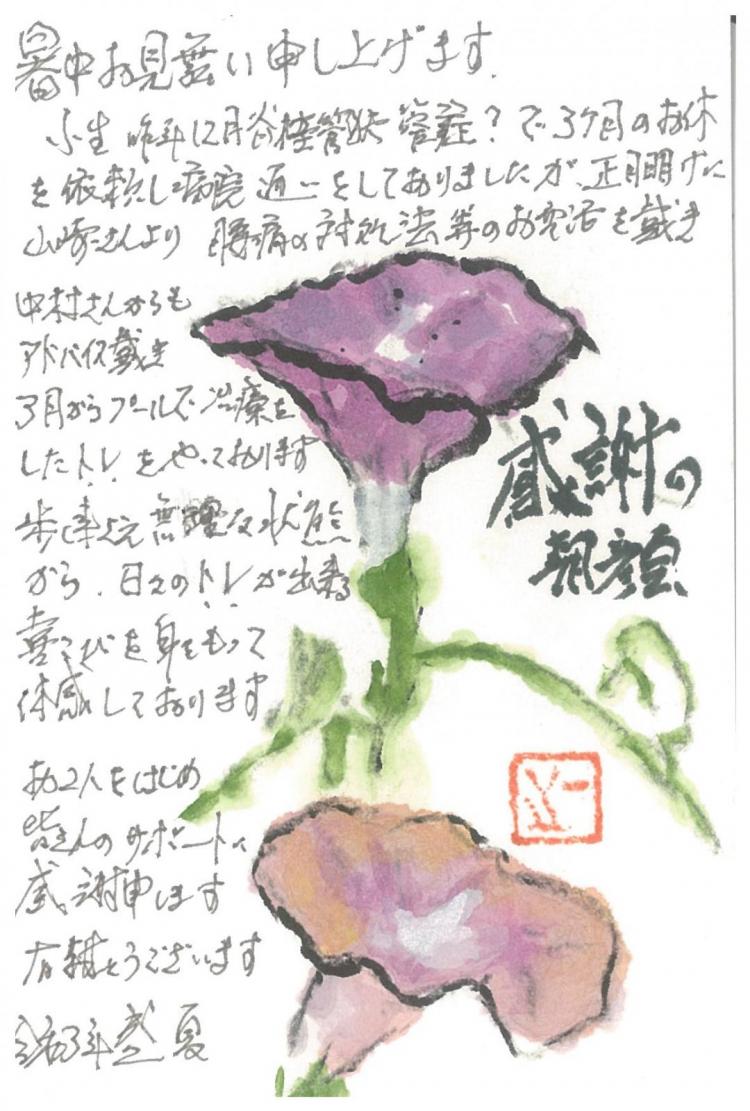 暑中お見舞い申し上げます.
小生 昨年12月脊柱管狭 窄症?で3ケ月のお休
を依頼し病院通いをしておりましたが、正月明けに
山崎さんより 腰痛の対処法等のお電話を戴き
中村さんからも
アドバイス戴き
3月からプールで治療を
したトレをやっております
歩く事さえ無理な状態
から、日々のトレが出来る
喜こびを身をもって
体感しております
お2人をはじめ
皆さんのサポートに
感謝申します
有難とうございます
3年 盛夏
感謝の
朝顔